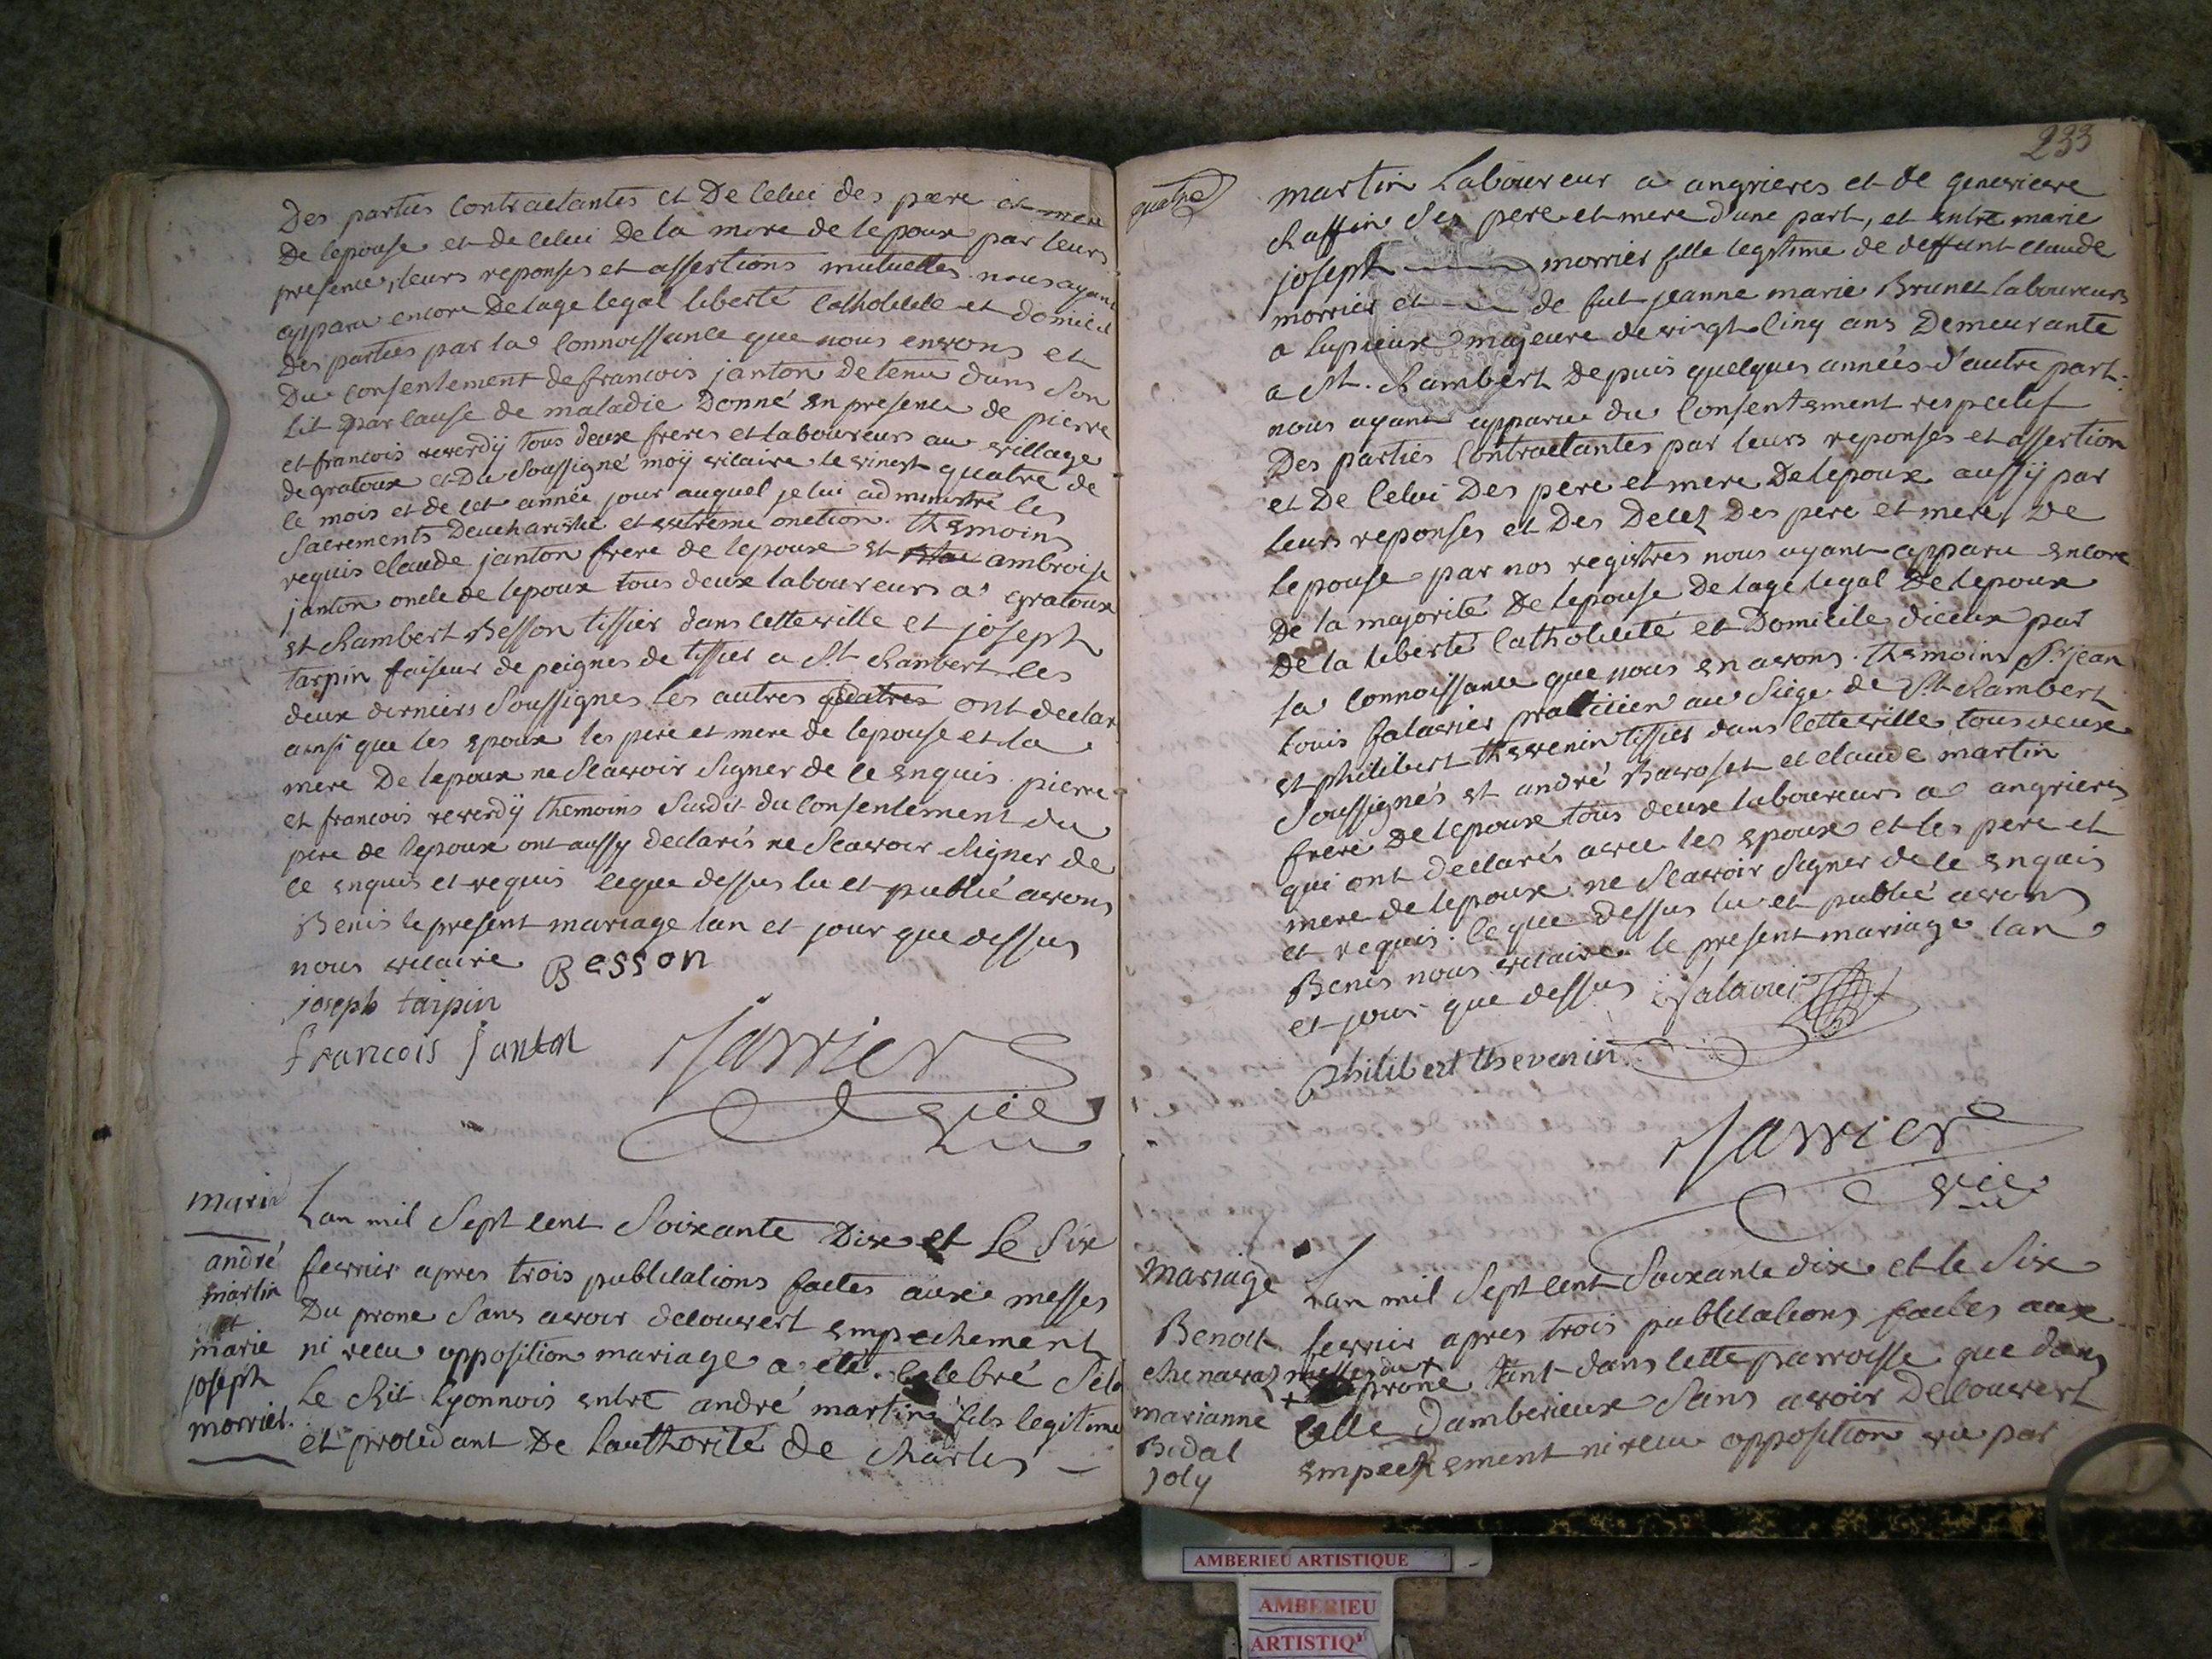 Des parties Contractantes et De Celui des pere et mere
De lepouse et de celui De la mere de lepoux par leurs
presence, leurs reponses et assertions mutuelles nous ayant
apparu encore De lage legal liberté Catholicité et domicile
Des parties par la Connoissance que nous en avons et
Du Consentement de francois janton Detenu dans Son
lit par cause de maladie Donné en presence de pierre
et francois reverdÿ tous deux freres et laboureurs au village
de gratoux et Du Soussigné moÿ vicaire le vingt quatre de
le mois et de cet année jour auquel je lui administré les
Sacrements Deucharistie et extreme onction. themoins
requis claude janton frere de lepoux et ambroise
janton oncle de lepoux tous deux laboureurs a gratoux
et Rambert Besson tissier dans cette ville et joseph
tarpin faiseur de peignes de tissier a St. Rambert les
deux derniers Soussignés les autres quatres ont declaré
ainsi que les epoux les pere et mere de lepouse et la
mere De lepoux ne Scavoir Signer de ce enquis. pierre
et francois reverdÿ themoins Susdit du Consentement du
pere de lepoux ont aussy declarés ne Scavoir Signer de
ce enquis et requis ceque dessus lu et publié avons
Benis le present mariage lan et jour que dessus
nous vicaire Besson
joseph tarpin
francois janton
Jarrier
vic
Lan mil Sept cent Soixante Dix et Le Six
fevrier apres trois publications faites aux messes
Du prone Sans avoir decouvert empechement
ni recu opposition mariage a eté Celebré Selo
Le Rit Lyonnois entre andré martin fils legitime
et procedant De Lauthorité de Charles
mari
andré
martin
et
marie
joseph
morrier.
233
quatre
martin Laboureur a angrieres et de genevieve
Raffin Ses pere et mere d'une part, et entre marie
joseph morrier fille legitime de deffunt claude
morrier et de fut jeanne marie Brunet laboureurs
a lupieux majeure de vingt Cinq ans Demeurante
a St. Rambert Depuis quelques années d'autre part.
nous ayant apparu du Consentement respectif
Des parties Contractantes par leurs reponses et assertion
et De Celui Des pere et mere De lepoux aussÿ par
leurs reponses et Des Decez Des pere et mere De
lepouse par nos registres nous ayant apparu encore
De la majorité De lepouse De lage legal De lepoux
De la liberté Catholicité et Domicile diceux par
la Connoissance que nous en avons. themoins Sr. jean
Louis falavier praticien au Siege de St. Rambert
et philibert thevenin tissier dans cette ville tous deux
Soussignés et andré Baroset et claude martin
frere De lepoux tous deux laboureurs a angrieres
qui ont declarés avec les epoux et les pere et
mere de lepoux ne Scavoir Signer de ce enquis
et requis. ceque dessus lu et publié avons
Benis nous vicaire le present mariage lan
et jour que dessus falavier
philibert thevenin
Jarrier
vic
mariage
Benoit
chenavaz
marianne
Bidal
joly
Lan mil Sept cent Soixante dix et le Six
fevrier apres trois publications faites aux
messes du +
+ prone tant dans cette parroisse que dans
celle Damberieux Sans avoir Decouvert
empechement ni recu opposition vu par
AMBERIEU ARTISTIQUE
AMBERIEU
ARTISTIQ